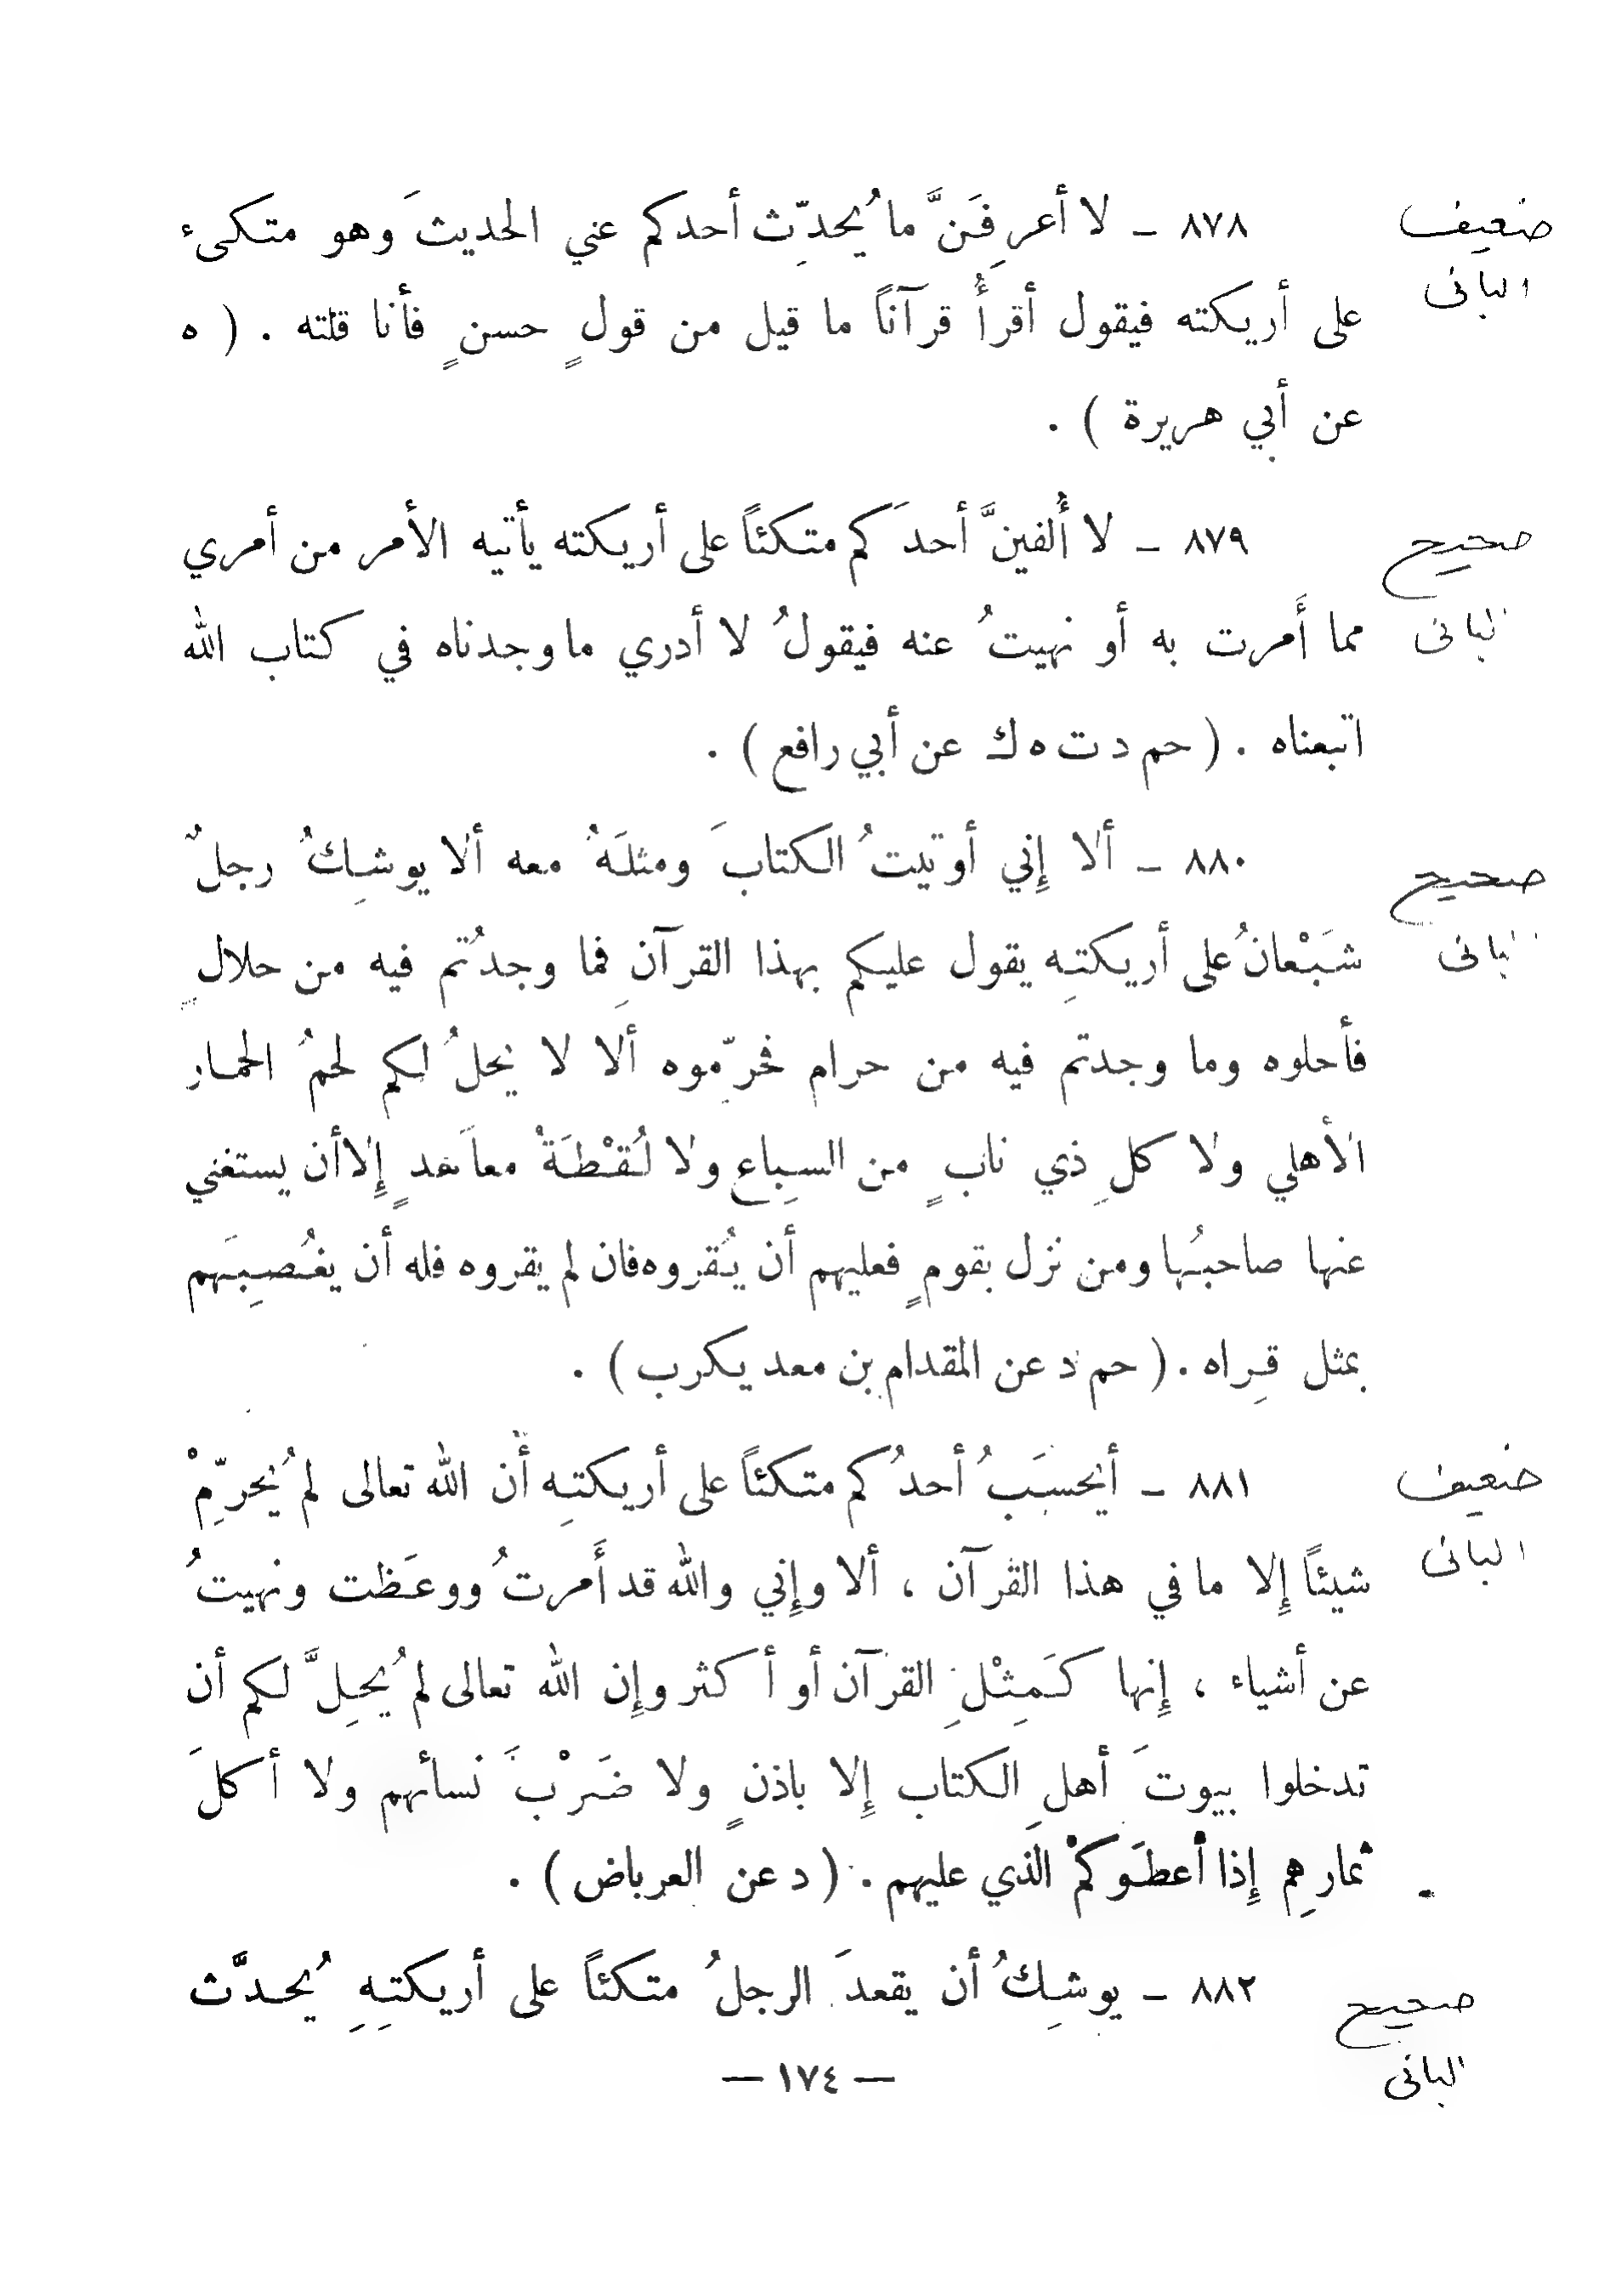 ضعيف
البانى
٨٧٨ - لا أعرِفَنَّ ما يُحدِّث أحدكم عني الحديثَ وهو متكىء
على أريكته فيقول أقرأُ قرآناً ما قيل من قولٍ حسنٍ فأنا قلته . ( ه
عن أبي هريرة ) .
صحيح
البانى
٨٧٩ - لا أُلفينَّ أحدَكم متكئاً على أريكته يأتيه الأمر من أمري
مما أَمرت به أو نهيتُ عنه فيقولُ لا أدري ما وجدناه في كتاب الله
اتبعناه . ( حم د ت ه ك عن أبي رافع ) .
صحيح
البانى
٨٨٠ - ألا إِني أوتيتُ الكتابَ ومثلَهُ معه ألا يوشِكُ رجلٌ
شَبْعانُ على أريكتِه يقول عليكم بهذا القرآنِ فما وجدُتم فيه من حلالٍ
فأحلوه وما وجدتم فيه من حرام فحرِّموه ألا لا يحلُ لكم لحمُ الحمار
الأهلي ولا كلِ ذي نابٍ من السِباع ولا لُقْطَةُ معاَهدٍ إِلا أن يستغني
عنها صاحبُها ومن نزل بقومٍ فعليهم أن يُقروه فان لم يقروه فله أن يغُصِبَهم
بمثل قِراه . ( حم د عن المقدام بن معد يكرب ) .
ضعيف
البانى
٨٨١ - أيحسَبُ أحدُكم متكئاً على أريكتِه أن الله تعالى لم يُحرِّمْ
شيئاً إِلا ما في هذا القرآن ، ألا وإِني والله قد أَمرتُ ووعَظت ونهيتُ
عن أشياء ، إِنها كَمِثْلِ القرآن أو أكثر وإِن الله تعالى لم يُحِلَّ لكم أن
تدخلوا بيوتَ أهلِ الكتاب إِلا باذنٍ ولا ضَرْبَ نسائهم ولا أكلَ
ثمارِهم إِذا أعطَوكمْ الذي عليهم . ( د عن العرباض ) .
صحيح
البانى
٨٨٢ - يوشِكُ أن يقعدَ الرجلُ متكئاً على أريكتِهِ يُحدَّث
— ١٧٤ —